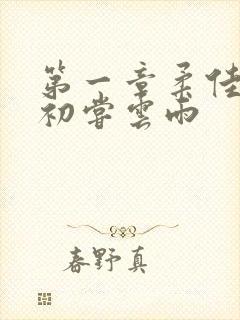 第一章柔佳
初嘗雲雨
春野真